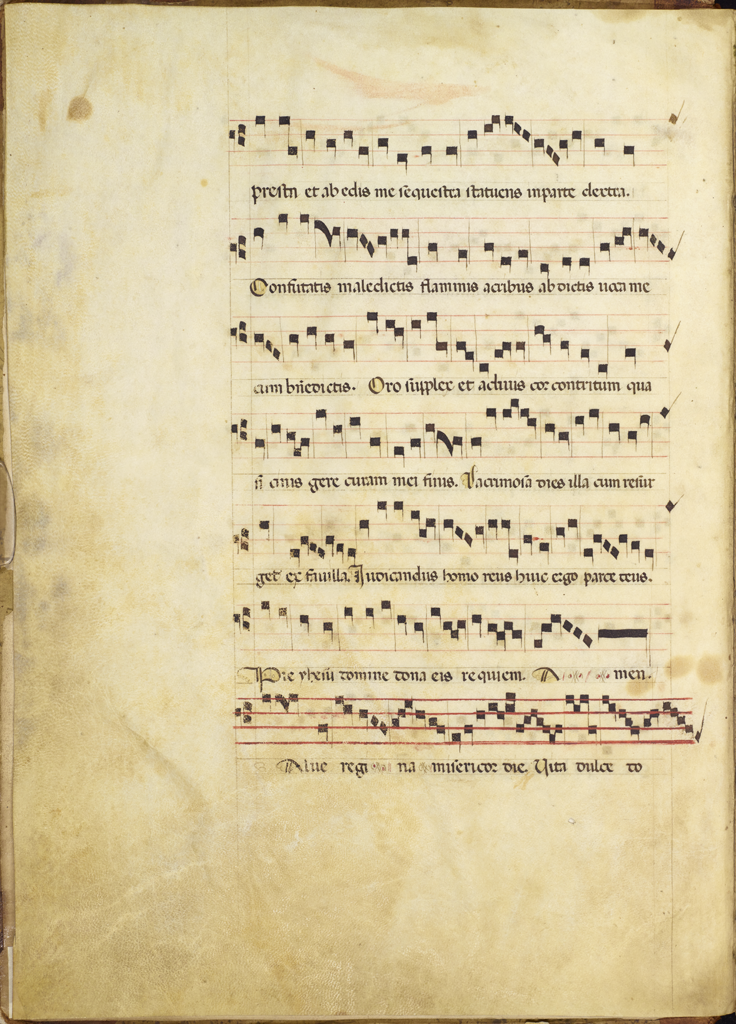 presta et ab edis me sequestra statuens in parte dextra.
Confutatis maledictis flammis acribus ab dictis uoca me
cum bñedictis. Oro supplex et acliuis cor contritum qua
si cinis gere curam mei finis. Lacrimosa dies illa cum resur
get ex fauilla. Iudicandus homo reus huic ergo parce deus.
Pie yhesu domine dona eis requiem. A men.
Alue regi na misericor die. Uita dulce do